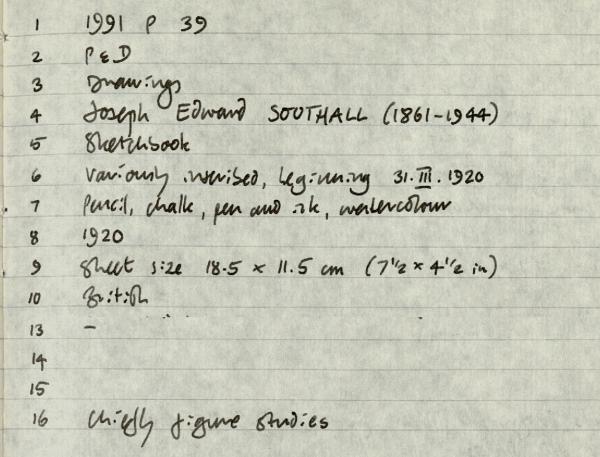 1 1991 P 39
2 P&D
3 Drawings
4 Joseph Edward SOUTHALL (1861-1944)
5 Sketchbook
6 Variously inscribed, beginning 31.III.1920
7 Pencil, chalk, pen and ink, watercolour
8 1920
9 Sheet size 18.5 x 11.5 cm (7 1/2 x 4 1/2 in)
10 British
13 -
14
15
16 Chiefly figure studies